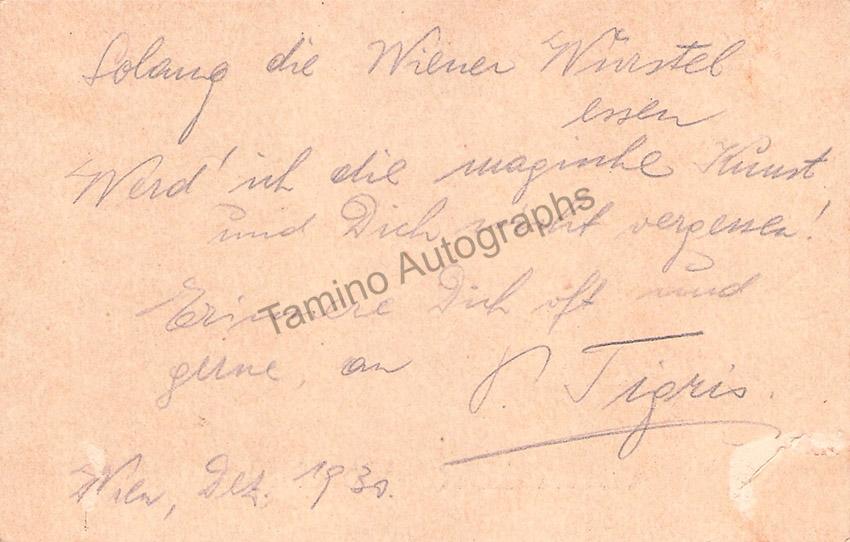 Solang die Wiener Würstel
essen
Werd' ich die magische Kunst
und Dich nicht vergessen!
Erinnere Dich oft und
gerne, an Tigris.
Wien, Dez. 1930.
Tamino Autographs